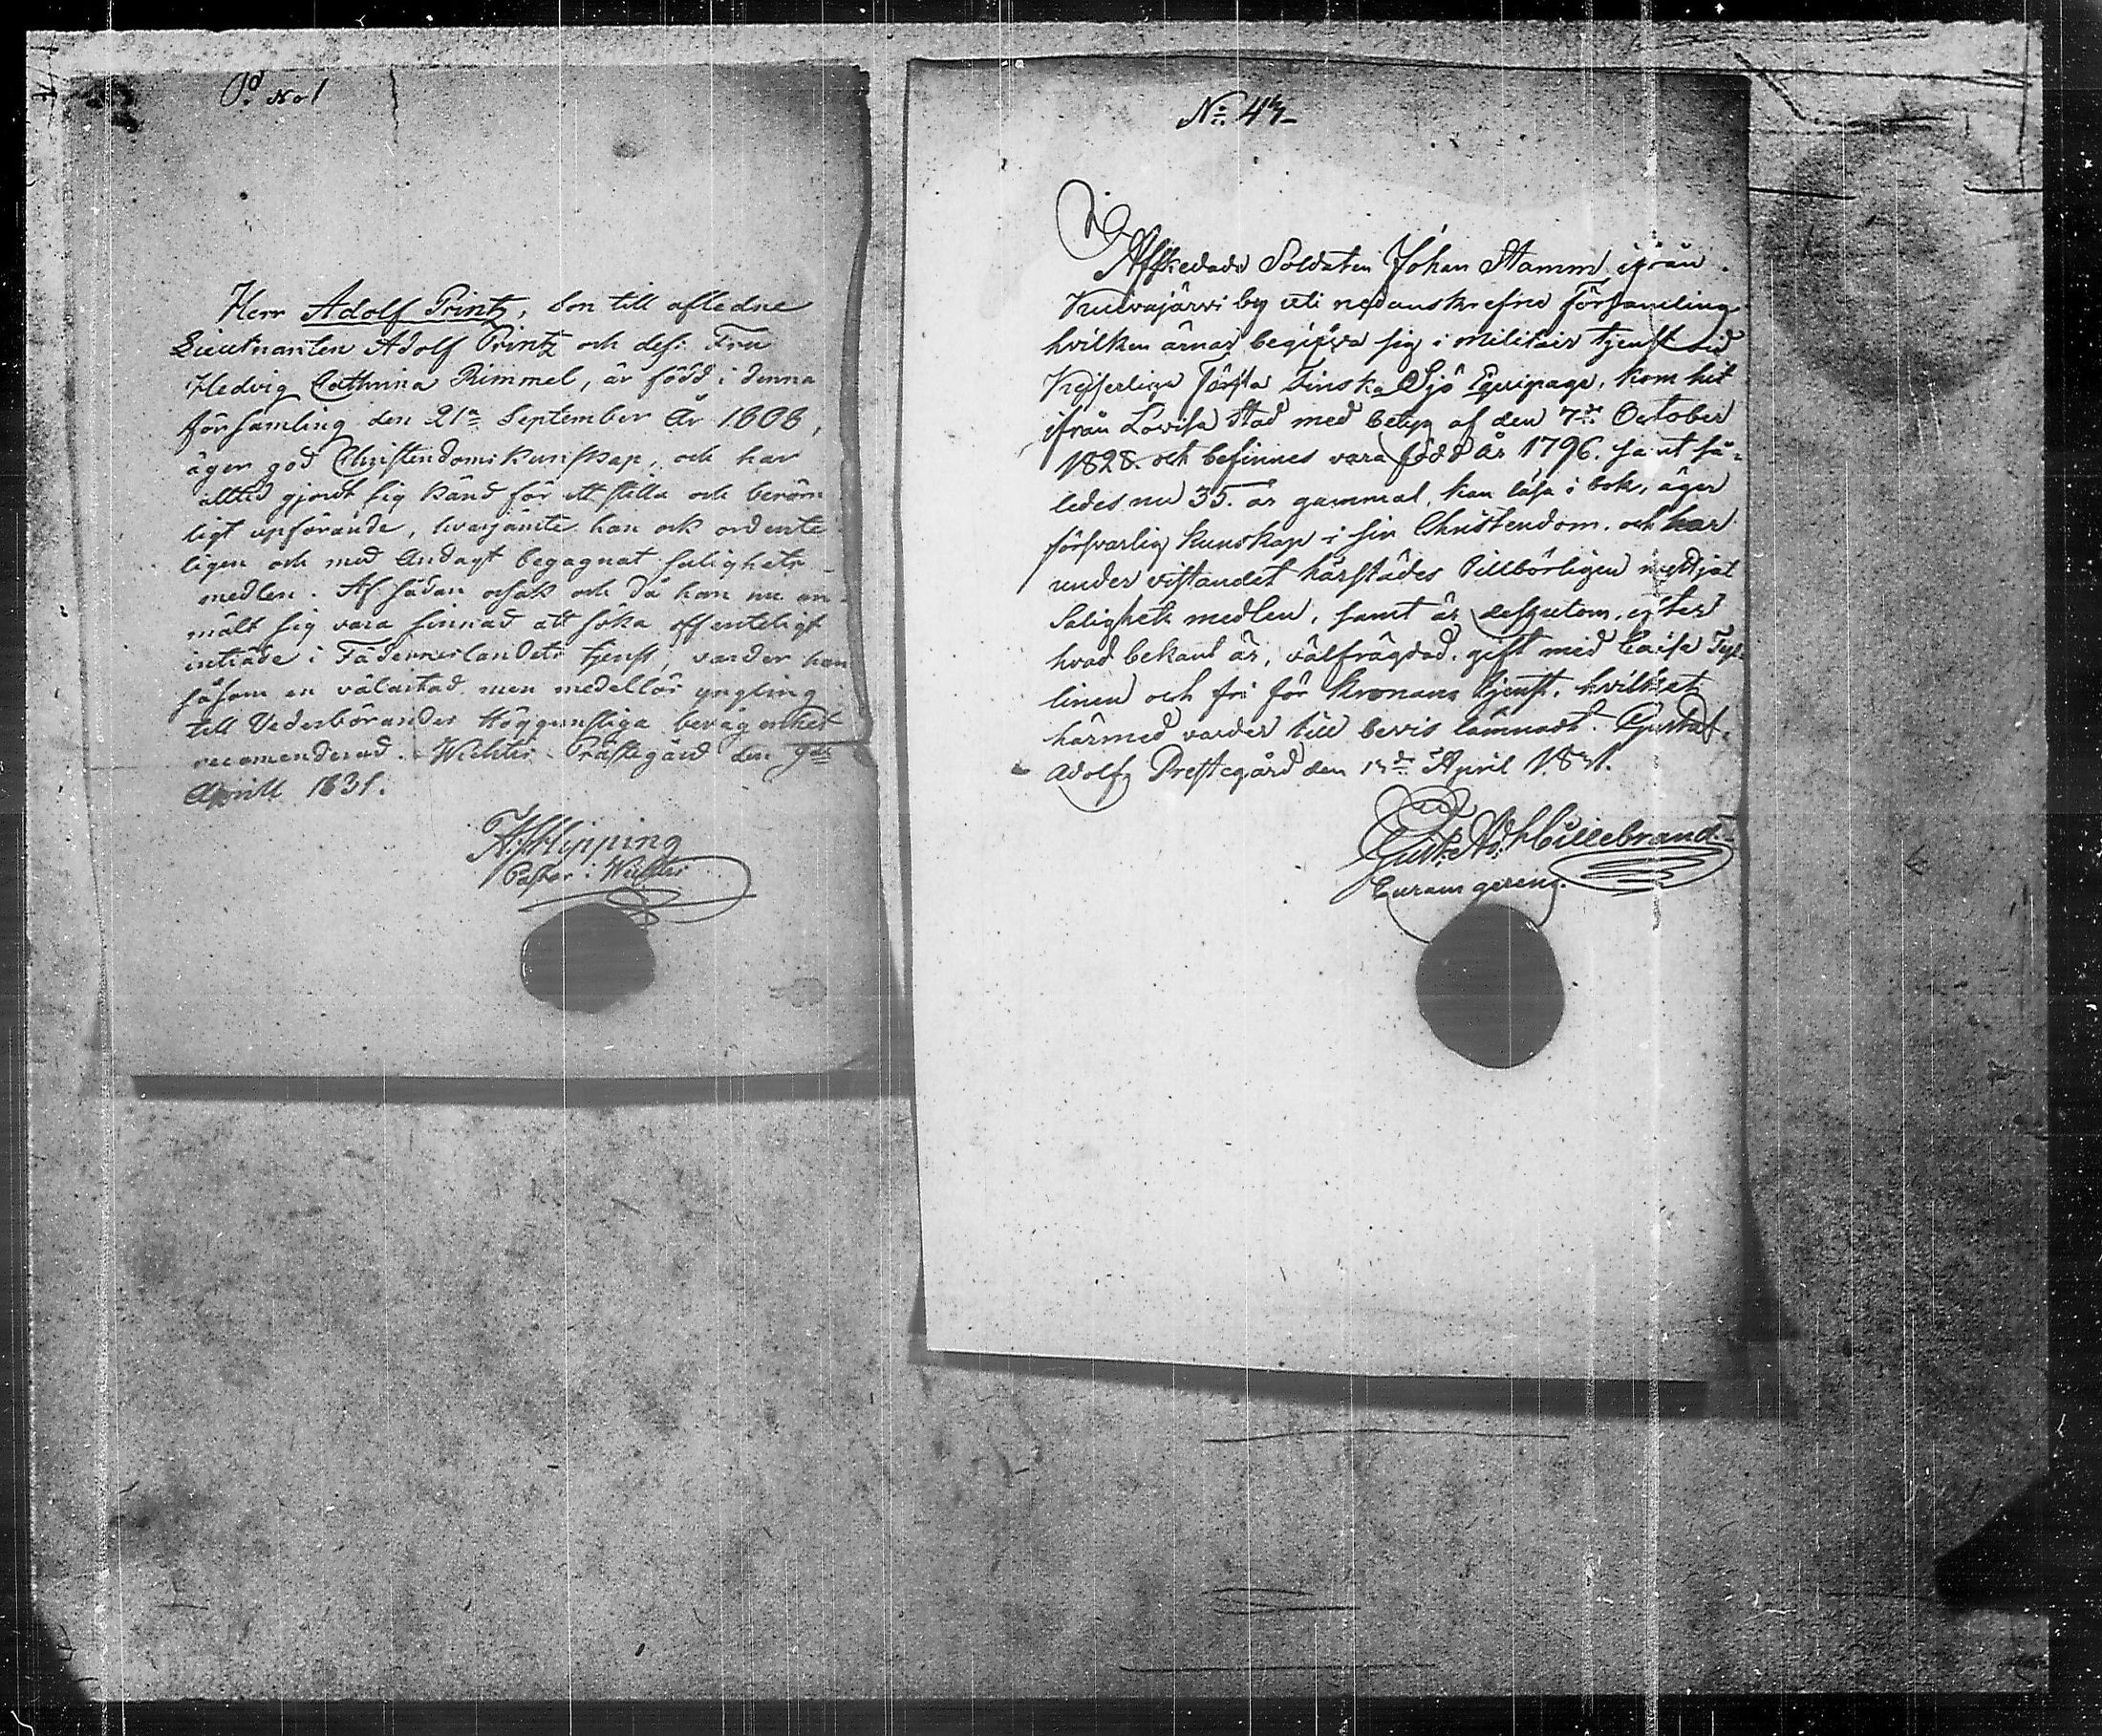 No 1
Herr Adolf Printz, Son till afledne
Lieutnanten Adolf Printz och dess Fru
Hedvig Cathrina Rimmel, är född i denna
församling den 21a September År 1808,
äger god Christendoms kunskap, och har
alltid gjordt sig känd för ett stilla och beröm
ligt upförande, hvarjämte han ock ordente
ligen och med Andagt begagnat salighets
medlen. Af sådan orsak och då han nu an-
mält sig vara sinnad att söka offenteligt
inträde i Fäderneslandets tjenst, varder han
såsom en välartad men medellös yngling
till Vederbörandes Höggunstiga bevågenhet
recomenderad. Wichtis Prästegård den 9de
Aprill 1831.
Hipping
Pastor i Wichtis
No: 47
Afskedade Soldaten Johan Stamm ifrån
by uti nedanskrefne Församling
hvilken ärnar begifva sig i militair tjenst vid
Kejserliga Första Finska Sjö Equipage, kom hit
ifrån Lovisa Stad med betyg af den 7de October
1828. och befinnes vara född år 1796. samt så-
ledes nu 35. år gammal, kan läsa i bok, äger
försvarlig kunskap i sin Christendom, och har
under vistandet härstädes Tillbörligen nyttjat
Salighets medlen, samt är dessutom, efter
hvad bekant är, välfrägdad, gift med Caisa
linen och fri för Kronans tjenst, hvilket
härmed varder till bevis lämnadt. Gustaf-
Adolfs Prestegård den April 1831.
Gust. Ad. Hillebrand.
Curam gerens.